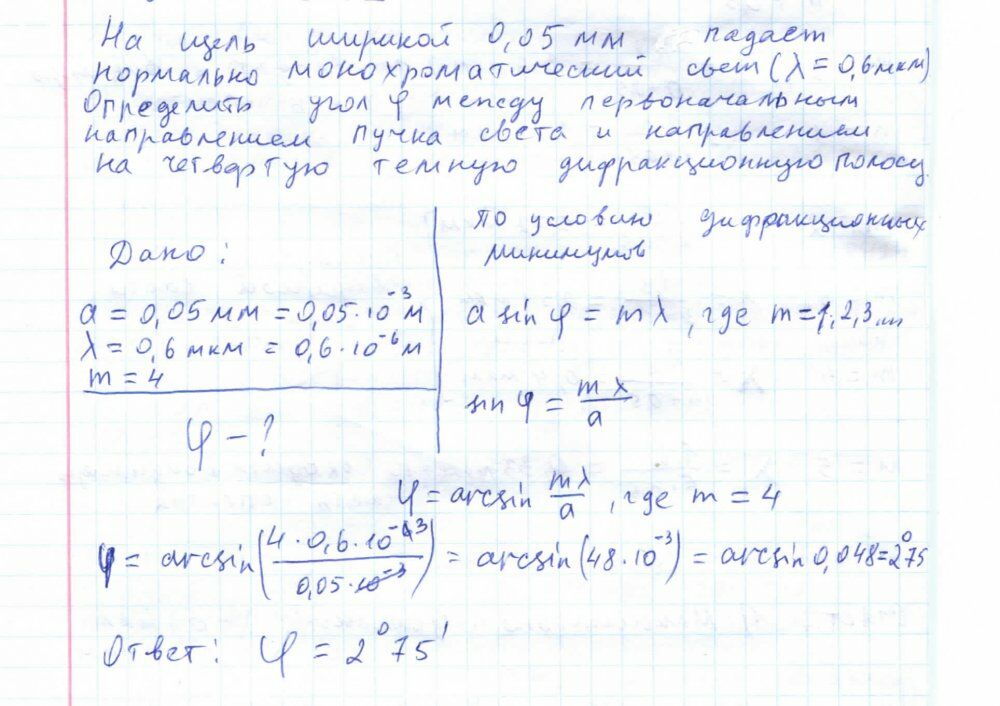 На щель шириной 0,05 мм падает
нормально монохроматический свет (λ = 0,6 мкм)
Определить угол φ между первоначальным
направлением пучка света и направлением
на четвертую темную дифракционную полосу.
Дано:
a = 0,05 мм = 0,05·10⁻³ м
λ = 0,6 мкм = 0,6·10⁻⁶ м
m = 4
φ – ?
По условию дифракционных
минимумов
a sin φ = mλ, где m = 1, 2, 3...
sin φ = mλ/a
φ = arcsin mλ/a, где m = 4
φ = arcsin(4·0,6·10⁻³/0,05·10⁻³) = arcsin(48·10⁻³) = arcsin 0,048 = 2°75
Ответ: φ = 2°75'